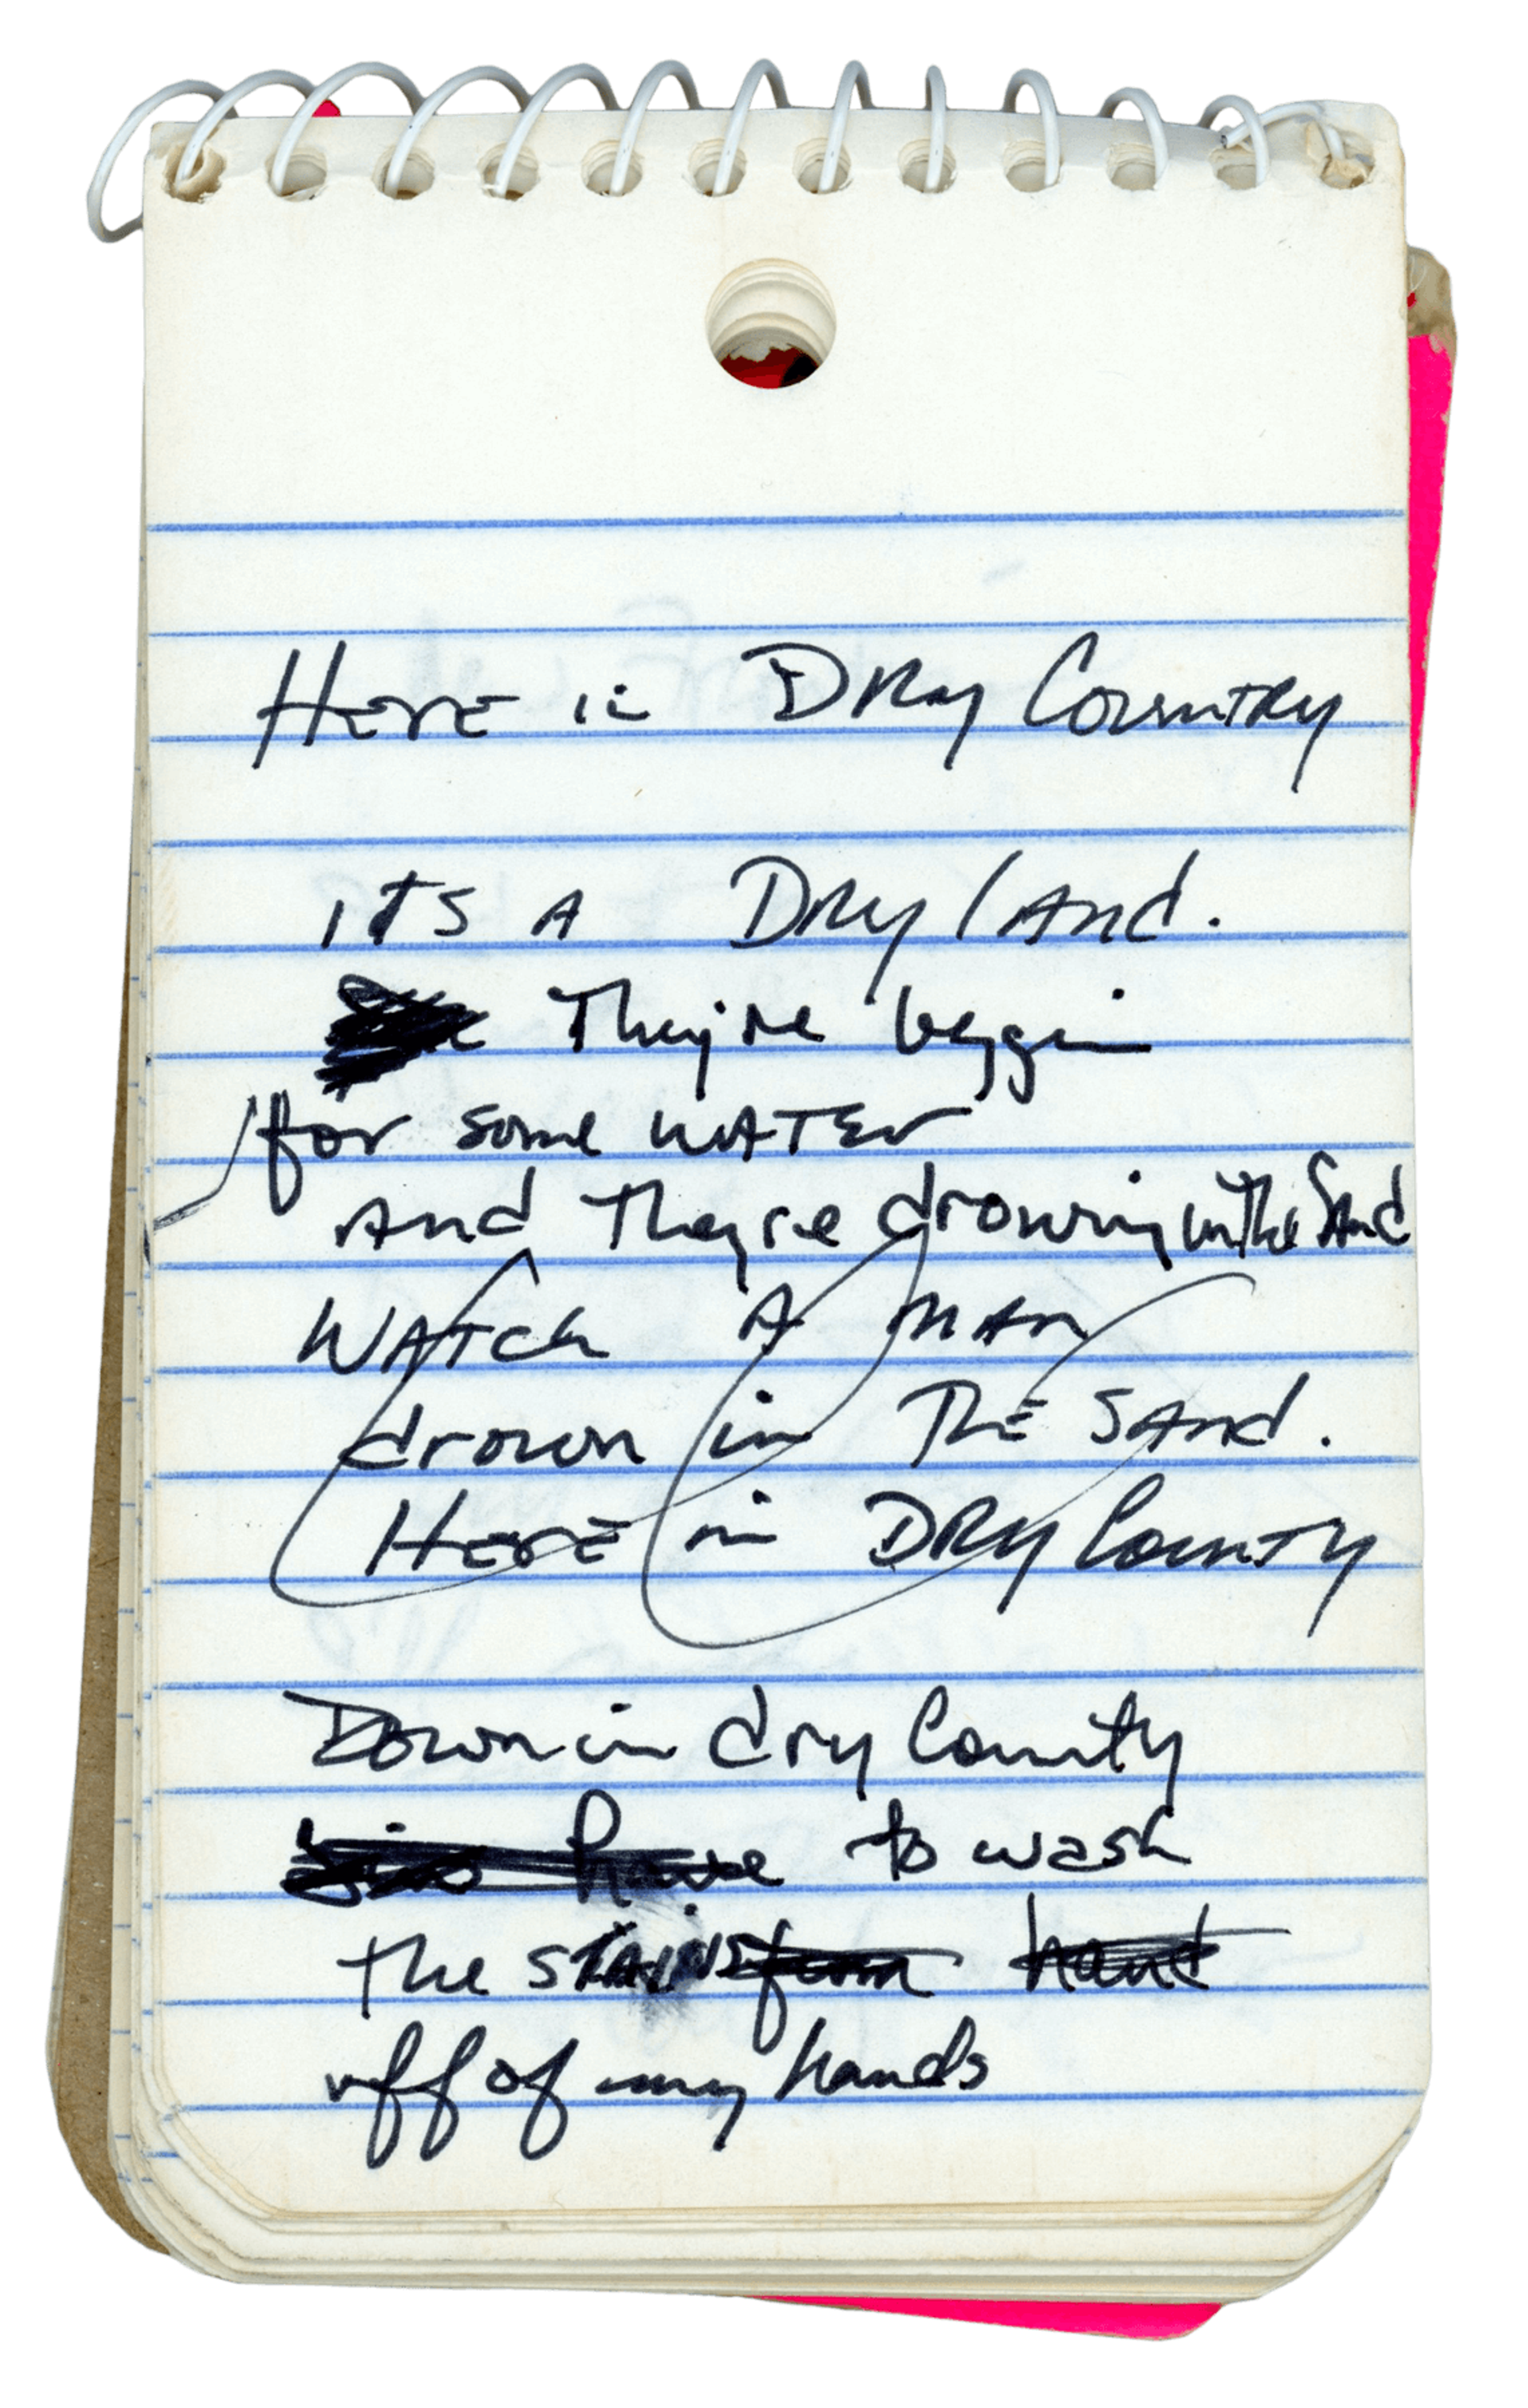 HERE in DRy COUNTRY
iTS A DRy lANd.
They're beggin
for some WATEr
ANd They're drowning in The SANd
WATCh A MAN
drown in THE SANd.
HERE in DRY COUNTY
Down in dry County
have to wash
the STAINS from hand
off of my hands